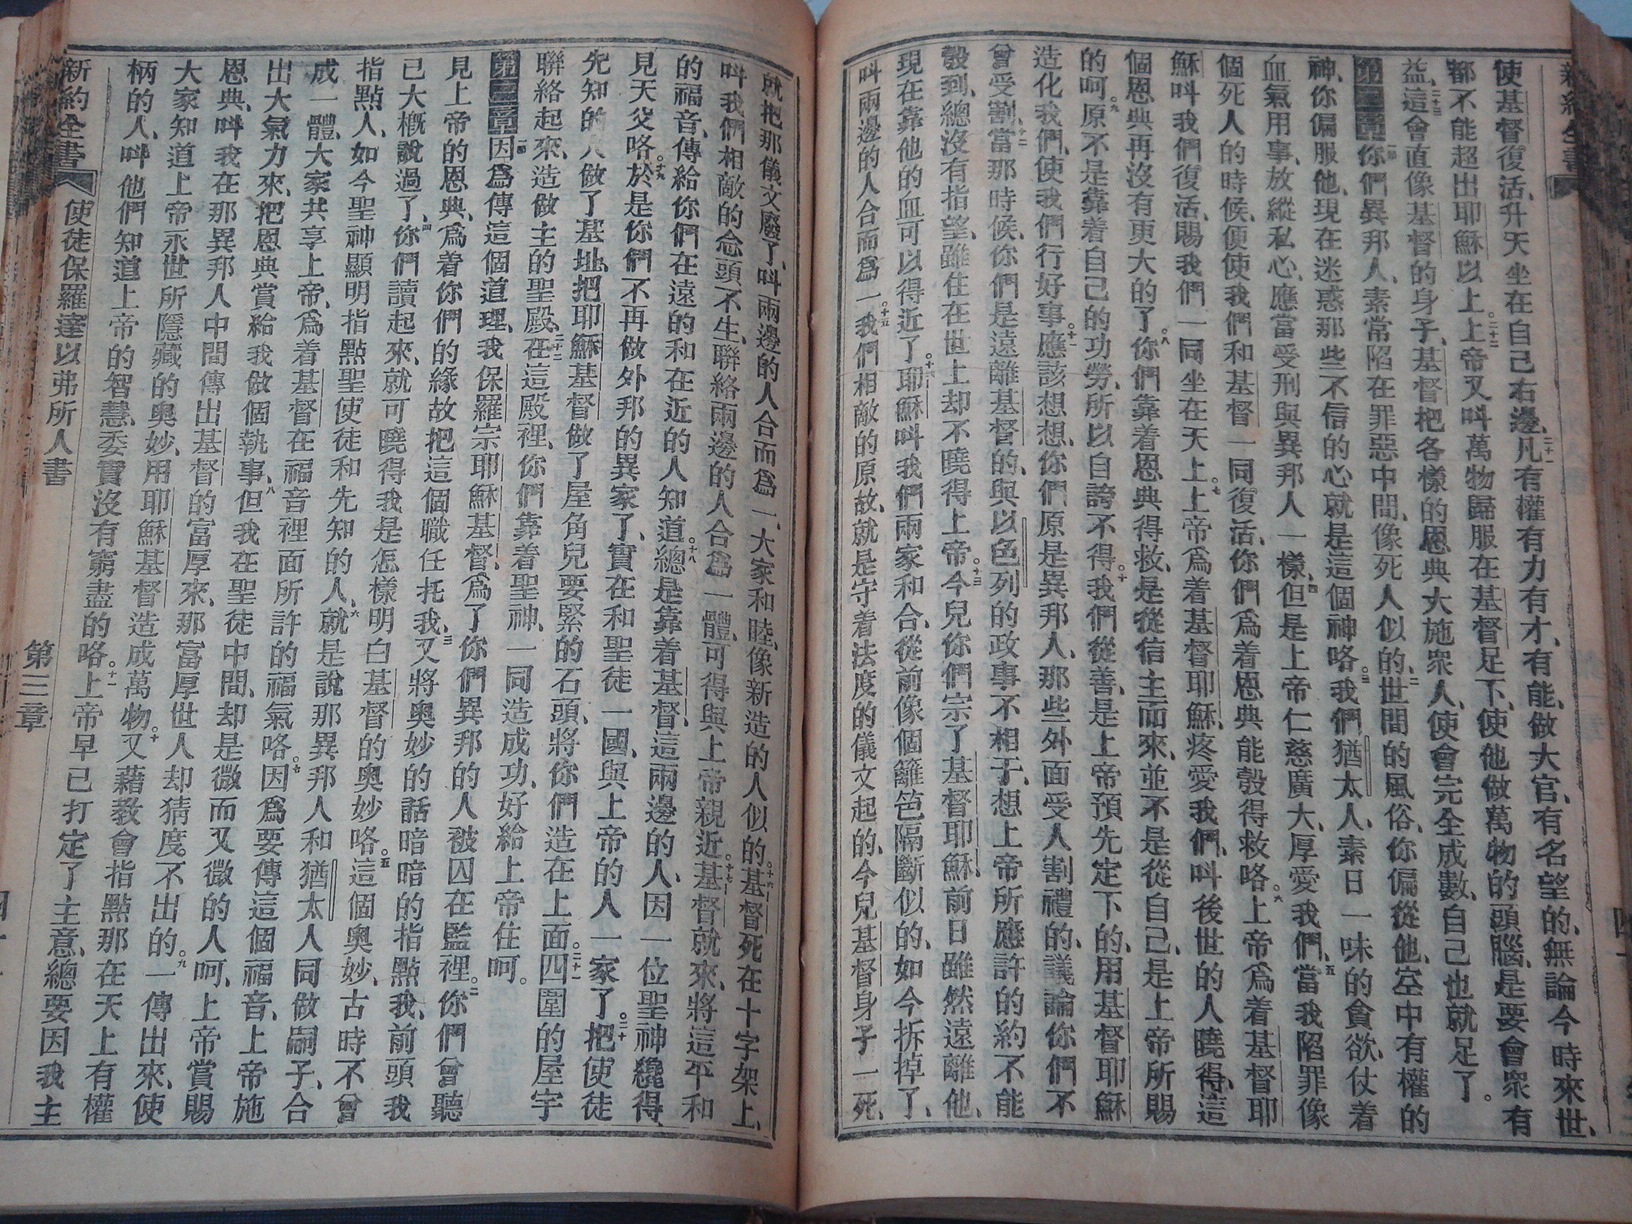 新約全書
使基督復活、升天坐在自己右邊、二十一凡有權有力有才、有能、做大官、有名望的、無論今時來世、
都不能超出耶穌以上。二十二上帝又呌萬物歸服在基督足下、使他做萬物的頭腦、是要會眾有
益、二十三這會直像基督的身子、基督把各樣的恩典大施眾人、使會完全成數、自己也就足了。
第二章一你們異邦人、素常陷在罪惡中間、像死人似的、二世間的風俗、你偏從他、空中有權的
神、你偏服他、現在迷惑那些不信的心就是這個神咯。三我們猶太人、素日一味的貪欲、仗着
血氣用事、放縱私心、應當受刑與異邦人一樣、四但是上帝仁慈廣大、厚愛我們、五當我陷罪像
個死人的時候、便使我們和基督一同復活、你們爲着恩典能彀得救咯。六上帝爲着基督耶
穌呌我們復活、賜我們一同坐在天上。七上帝爲着基督耶穌、疼愛我們、呌後世的人曉得、這
個恩典再沒有更大的了。八你們靠着恩典得救、是從信主而來、並不是從自己、是上帝所賜
的呵。九原不是靠着自己的功勞、所以自誇不得。十我們從善、是上帝預先定下的、用基督耶穌
造化我們、使我們行好事。十一應該想想、你們原是異邦人、那些外面受人割禮的、議論你們不
曾受割、十二當那時候、你們是遠離基督的、與以色列的政事不相干、想上帝所應許的約不能
彀到、總沒有指望、雖住在世上、却不曉得上帝。十三今兒你們宗了基督耶穌、前日雖然遠離他、
現在靠他的血可以得近了。十四耶穌呌我們兩家和合、從前像個籬笆隔斷似的、如今拆掉了、
呌兩邊的人合而爲一。十五我們相敵的原故、就是守着法度的儀文起的、今兒基督身子一死、
就把那儀文廢了、呌兩邊的人合而爲一、大家和睦、像新造的人似的。十六基督死在十字架上、
呌我們相敵的念頭不生、聯絡兩邊的人合爲一體、可得與上帝親近。十七基督就來、將這平和
的福音、傳給你們在遠的和在近的人知道。十八總是靠着基督、這兩邊的人、因一位聖神纔得
見天父咯。十九於是你們不再做外邦的異家了、實在和聖徒一國、與上帝的人一家了。二十把使徒
先知的人做了基址、把耶穌基督做了屋角兒要緊的石頭、將你們造在上面。二十一四圍的屋宇
聯絡起來、造做主的聖殿、二十二在這殿裡、你們靠着聖神、一同造成功、好給上帝住呵。
第三章一因爲傳這個道理、我保羅宗耶穌基督、爲了你們異邦的人被囚在監裡。二你們曾聽
見上帝的恩典、爲着你們的緣故把這個職任托我、三又將奧妙的話暗暗的指點我、前頭我
已大槪說過了、四你們讀起來、就可曉得我是怎樣明白基督的奧妙咯。五這個奧妙、古時不曾
指點人、如今聖神顯明指點聖使徒和先知的人、六就是說那異邦人和猶太人同做嗣子、合
成一體、大家共享上帝、爲着基督在福音裡面所許的福氣咯。七因爲要傳這個福音、上帝施
出大氣力來、把恩典賞給我做個執事、八但我在聖徒中間、却是微而又微的人呵、上帝賞賜
恩典、呌我在那異邦人中間傳出基督的富厚來、那富厚世人却猜度不出的。九一傳出來、使
大家知道上帝永世所隱藏的奧妙、用耶穌基督造成萬物。十又藉教會指點那在天上有權
柄的人、呌他們知道上帝的智慧、委實沒有窮盡的咯。十一上帝早已打定了主意、總要因我主
新約全書 使徒保羅達以弗所人書 第三章